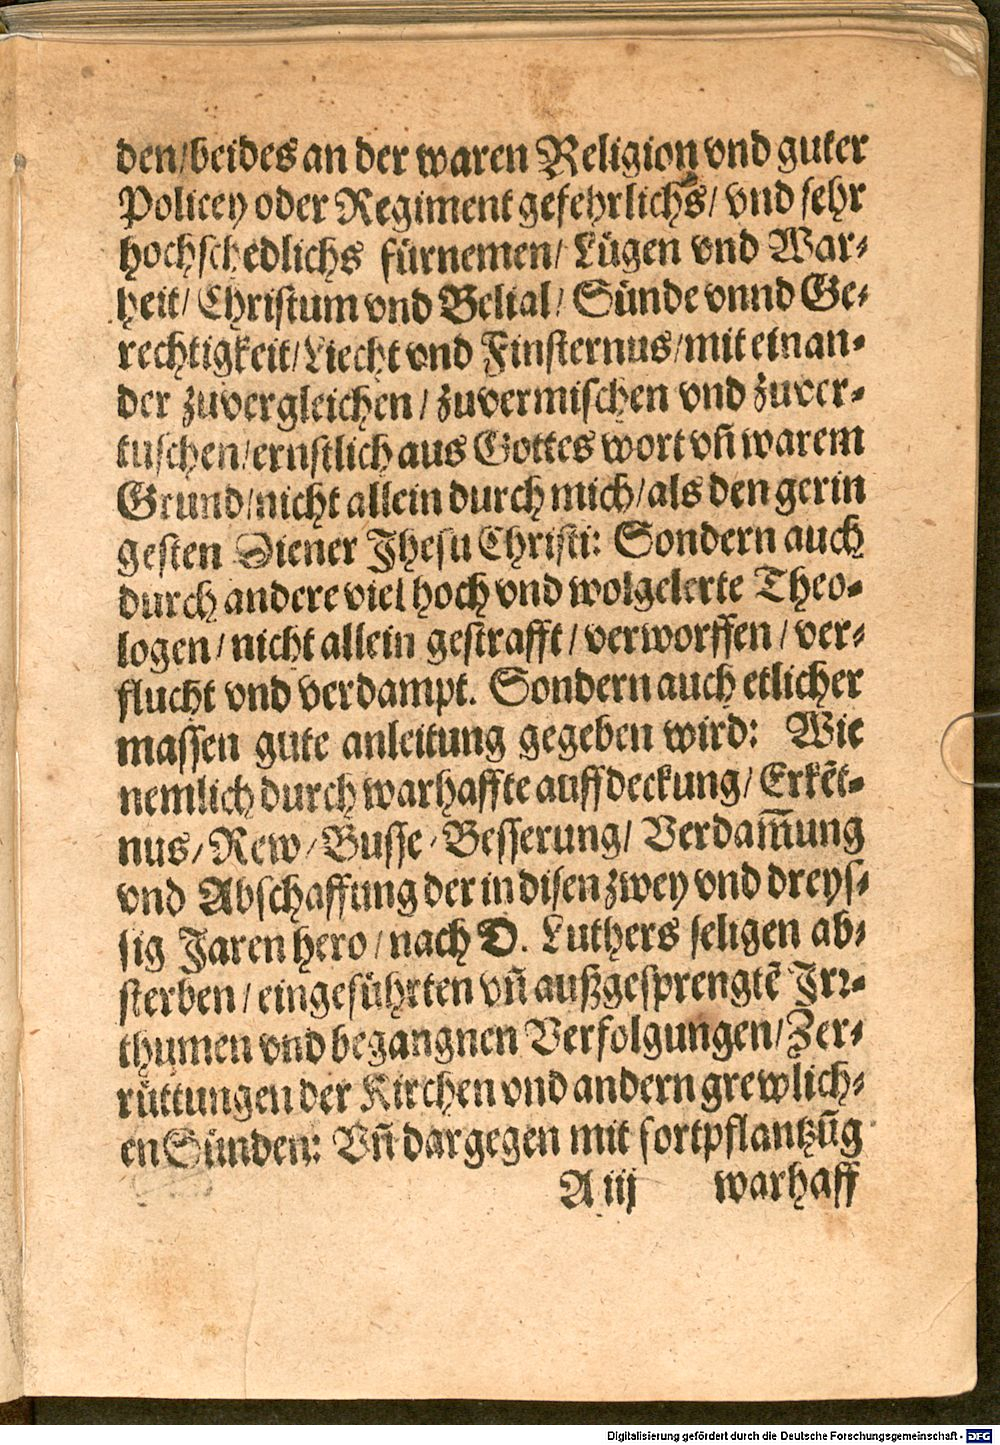 den/beides an der waren Religion vnd guter
Policey oder Regiment gefehrlichs/ vnd sehr
hochschedlichs fürnemen/ Lügen vnd War⸗
heit/ Christum vnd Belial/ Sünde vnnd Ge⸗
rechtigkeit/Liecht vnd Finsternus/mit einan⸗
der zuvergleichen/ zuvermischen vnd zuver⸗
tuschen/ernstlich aus Gottes wort vn̄ warem
Grund/nicht allein durch mich/als den gerin
gesten Diener Jhesu Christi: Sondern auch
durch andere viel hoch vnd wolgelerte Theo⸗
logen/ nicht allein gestrafft/ verworffen/ ver⸗
flucht vnd verdampt. Sondern auch etlicher
massen gute anleitung gegeben wird: Wie
nemlich durch warhaffte auffdeckung/ Erkēt⸗
nus/ Rew/ Busse/ Besserung/ Verdam̄ung
vnd Abschaffung der in disen zwey vnd dreys⸗
sig Jaren hero/ nach D. Luthers seligen ab⸗
sterben/ eingeführten vn̄ außgesprengtē Irr⸗
thumen vnd begangnen Verfolgungen/ Zer⸗
rüttungen der Kirchen vnd andern grewlich⸗
en Sünden: Vn̄ dargegen mit fortpflantzūg
A iij warhaff
Digitalisierung gefördert durch die Deutsche Forschungsgemeinschaft - DFG